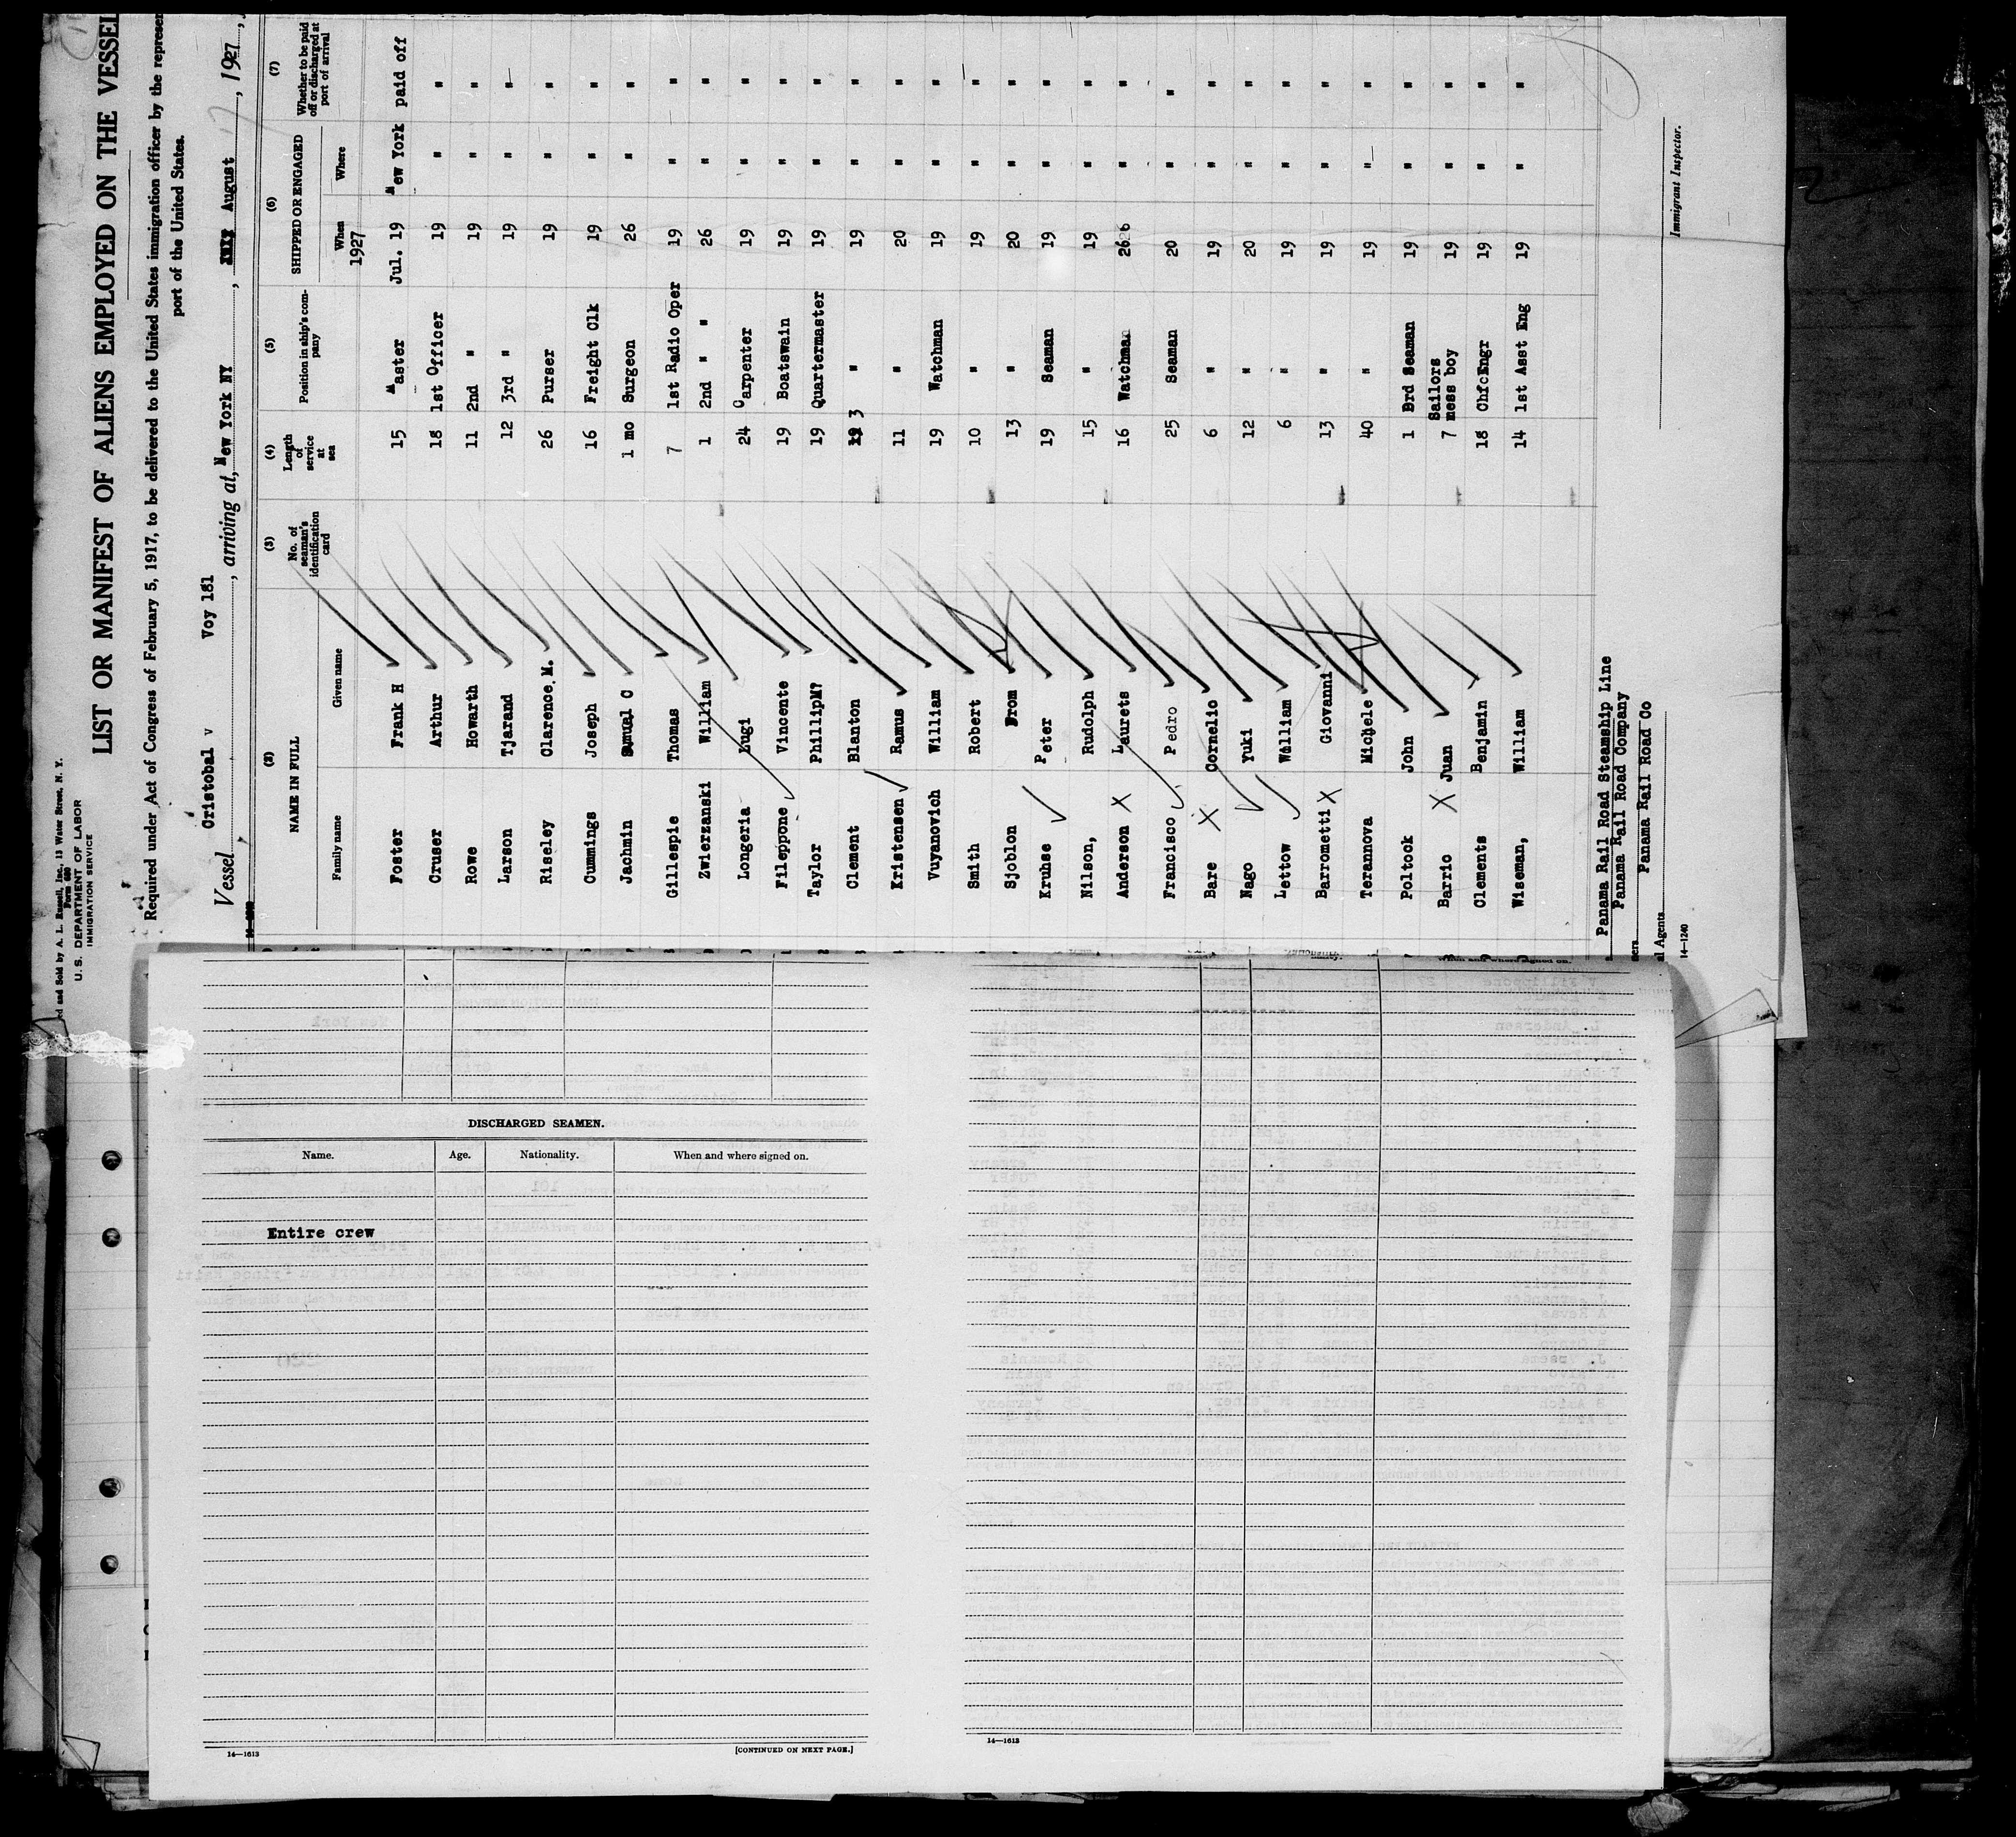 ed and Sold by A. L. Russell, Inc., 13 Water Street, N. Y.
Form 680
U. S. DEPARTMENT OF LABOR
IMMIGRATION SERVICE
LIST OR MANIFEST OF ALIENS EMPLOYED ON THE VESSEL
Required under Act of Congress of February 5, 1917, to be delivered to the United States immigration officer by the represen
port of the United States.
Vessel Cristobal v Voy 181, arriving at, New York NY, August 17, 1927,
(2) (3) (4) (5) (6) (7)
NAME IN FULL No. of seaman's identification card Length of service at sea Position in ship's company SHIPPED OR ENGAGED Whether to be paid off or discharged at port of arrival
Family name Given name When Where
1927
Foster Frank H 15 Master Jul. 19 New York paid off
Cruser Arthur 18 1st Officer 19 " "
Rowe Howarth 11 2nd " 19 " "
Larson Tjarand 12 3rd " 19 " "
Riseley Clarence. M. 26 Purser 19 " "
Cummings Joseph 16 Freight Clk 19 " "
Jachmin Samual C 1 mo Surgeon 26 " "
Gillespie Thomas 7 1st Radio Oper 19 " "
Zwierzanski William 1 2nd " " 26 " "
Longeria Lugi 24 Carpenter 19 " "
Fileppone Vincente 19 Boatswain 19 " "
Taylor PhillipM? 19 Quartermaster 19 " "
Clement Blanton 3 " 19 " "
Kristensen Ramus 11 " 20 " "
Vuyanovich William 19 Watchman 19 " "
Smith Robert 10 " 19 " "
Sjoblon From 13 " 20 " "
Kruhse Peter 19 Seaman 19 " "
Nilson, Rudolph 15 " 19 " "
Anderson X Laurets 16 Watchman 26 " "
Francisco Pedro 25 Seaman 20 " "
Bare X Cornelio 6 " 19 " "
Nago Yuki 12 " 20 " "
Lettow William 6 " 19 " "
Barrometti X Giovanni 13 " 19 " "
Terannova Michele 40 " 19 " "
Poltock John 1 Brd Seaman 19 " "
Barrio X Juan 7 Sailors mess boy 19 " "
Clements Benjamin 18 Chfc Engr 19 " "
Wiseman, William 14 1st Asst Eng 19 " "
Panama Rail Road Steamship Line
Panama Rail Road Company
Panama Rail Road Co
sers
al Agents
14—1240
Immigrant Inspector.
DISCHARGED SEAMEN.
Name. Age. Nationality. When and where signed on.
Entire crew
14—1613
[CONTINUED ON NEXT PAGE.]
When and where signed on.
14—1613